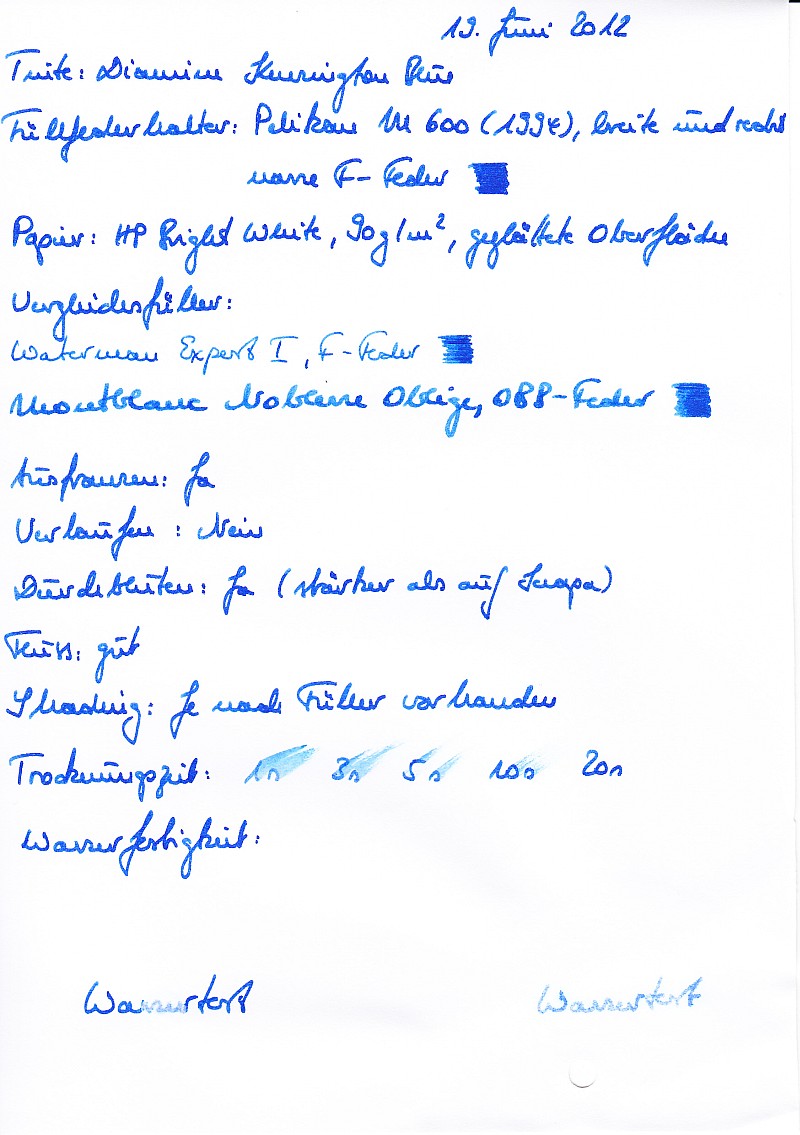 19. Juni 2012
Tinte: Diamine Kensington Blue
Füllfederhalter: Pelikan M 600 (1994), breite und recht
nasse F-Feder
Papier: HP Bright White, 90g/m², geglättete Oberfläche
Vergleichsfüller:
Waterman Expert I, F-Feder
Montblanc Noblesse Oblige, OBB-Feder
Ausfransen: Ja
Verlaufen: Nein
Durchbluten: Ja (stärker als auf Inapa)
Fluss: gut
Shading: Je nach Füller vorhanden
Trocknungszeit: 1s 3s 5s 10s 20s
Wasserfestigkeit:
Wassertest Wassertest